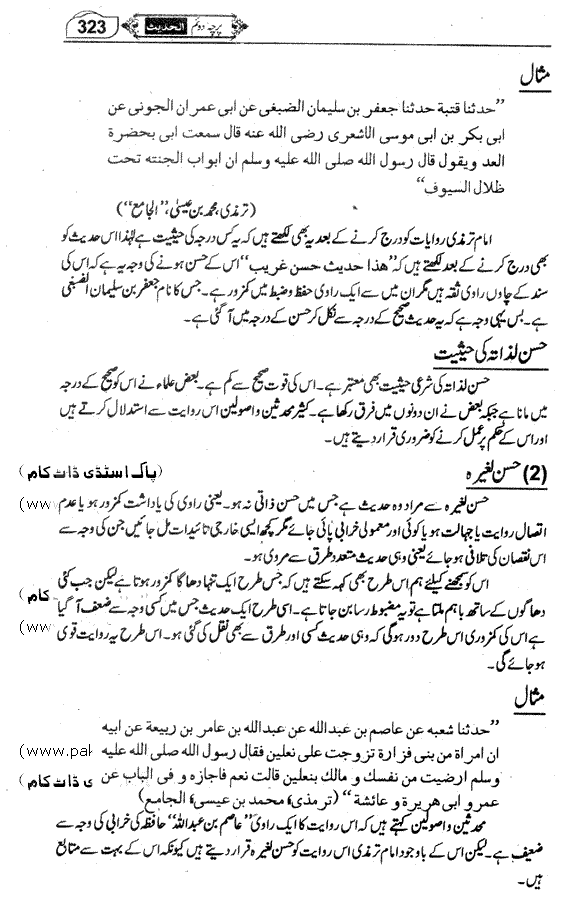 323 الحدیث پرچہ دوئم
مثال
”حدثنا قتبة حدثنا جعفر بن سليمان الضبغی عن ابی عمران الجونی عن
ابی بکر بن ابی موسی الاشعری رضی الله عنه قال سمعت ابی بحضرة
العد ویقول قال رسول الله صلی الله علیه وسلم ان ابواب الجنته تحت
ظلال السیوف“
(ترمذی، محمد بن عیسیٰ، ”الجامع“)
امام ترمذی روایات کو درج کرنے کے بعد یہ بھی لکھتے ہیں کہ یہ کس درجہ کی حیثیت ہے لہٰذا اس حدیث کو
بھی درج کرنے کے بعد لکھتے ہیں کہ ”هذا حدیث حسن غریب“ اس کے حسن ہونے کی وجہ یہ ہے کہ اس کی
سند کے چاوں راوی ثقہ ہیں مگر ان میں سے ایک راوی حفظ و ضبط میں کمزور ہے۔ جس کا نام جعفر بن سلیمان الضبغی
ہے۔ بس یہی وجہ ہے کہ یہ حدیث صحیح کے درجہ سے نکل کر حسن کے درجہ میں آ گئی ہے۔
حسن لذاتہ کی حیثیت
حسن لذاتہ کی شرعی حیثیت بھی معتبر ہے۔ اس کی قوت صحیح سے کم ہے۔ بعض علماء نے اس کو صحیح کے درجہ
میں مانا ہے جبکہ بعض نے ان دونوں میں فرق رکھا ہے۔ کثیر محدثین و اصولین اس روایت سے استدلال کرتے ہیں
اور اس کے حکم پر عمل کرنے کو ضروری قرار دیتے ہیں۔
(2) حسن لغیرہ
(پاک اسٹڈی ڈاٹ کام
حسن لغیرہ سے مراد وہ حدیث ہے جس میں حسن ذاتی نہ ہو۔ یعنی راوی کی یاداشت کمزور ہو یا عدم
(www
اتصال روایت یا جہالت ہو یا کوئی اور معمولی خرابی پائی جائے مگر کچھ ایسی خارجی تائیدات مل جائیں جن کی وجہ سے
اس نقصان کی تلافی ہو جائے یعنی وہی حدیث متعدد طرق سے مروی ہو۔
اس کو سمجھنے کیلئے ہم اس طرح بھی کہہ سکتے ہیں کہ جس طرح ایک تنہا دھاگا کمزور ہوتا ہے لیکن جب کئی
کام
دھاگوں کے ساتھ باہم ملتا ہے تو یہ مضبوط رسا بن جاتا ہے۔ اسی طرح ایک حدیث جس میں کسی وجہ سے ضعف آ گیا
(ww
ہے اس کی کمزوری اس طرح دور ہوگی کہ وہی حدیث کسی اور طرق سے بھی نقل کی گئی ہو۔ اس طرح یہ روایت قوی
ہو جائے گی۔
مثال
”حدثنا شعبه عن عاصم بن عبدالله عن عبدالله بن عامر بن ربیعة عن ابیه
ان امراة من بنی فزارة تزوجت علی نعلین فقال رسول الله صلی الله علیه
(www.pak
وسلم ارضیت من نفسك و مالك بنعلین قالت نعم فاجازه و فی الباب عن
ی ڈاٹ کام
عمر و ابی هریرة و عائشة“ (ترمذی، محمد بن عیسیٰ، الجامع)
محدثین و اصولین کہتے ہیں کہ اس روایت کا ایک راوی ”عاصم بن عبداللہ“ حافظہ کی خرابی کی وجہ سے
ضعیف ہے۔ لیکن اس کے باوجود امام ترمذی اس روایت کو حسن لغیرہ قرار دیتے ہیں کیونکہ اس کے بہت سے متابع
ہیں۔